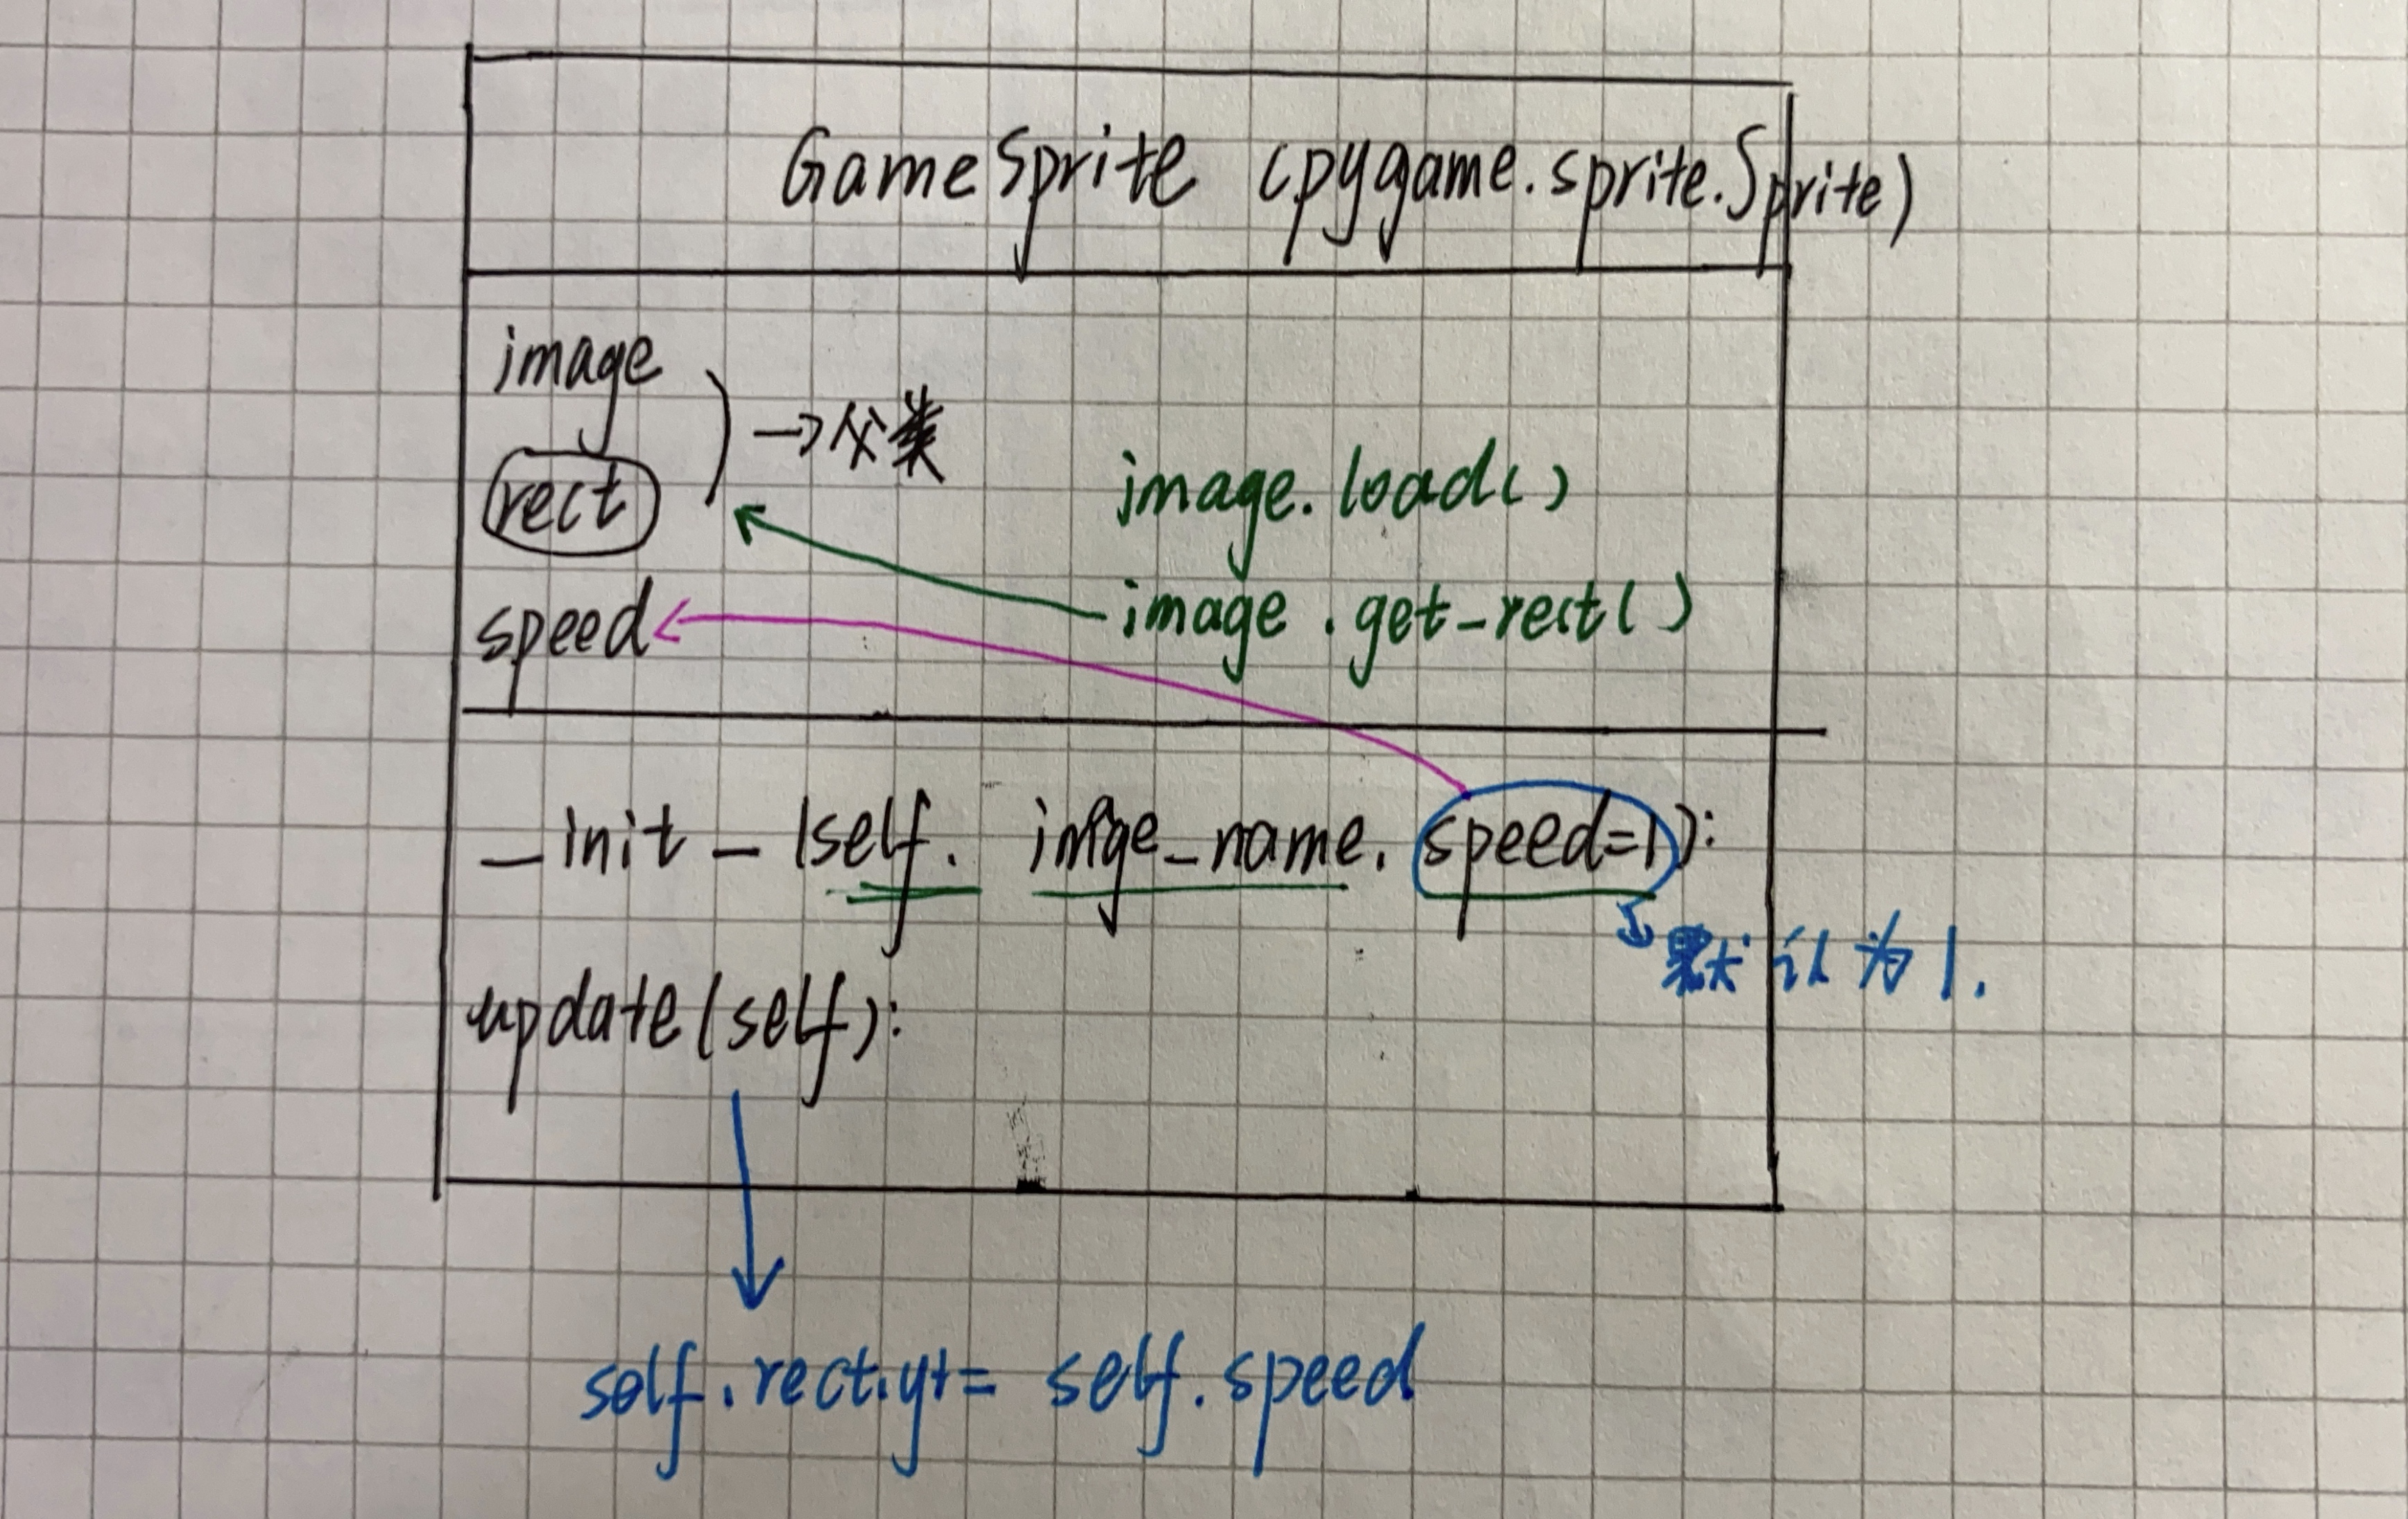 GameSprite (pygame.sprite.Sprite)
image
→父类
rect
image.load()
image.get_rect()
speed
_init_(self. imge_name. speed=1):
默认为1.
update(self):
self.rect.y+= self.speed